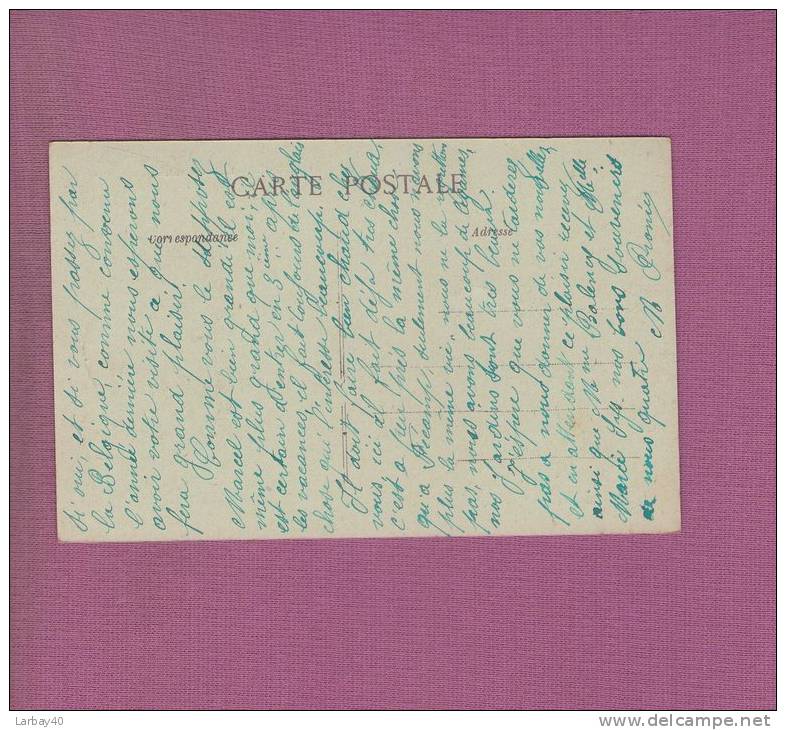 CARTE POSTALE
Correspondance
Adresse
Si oui, et si vous passez par
la Belgique, comme convenu
l'année dernière nous esperons
avoir votre visite à que nous
fera grand plaisir!
Comme vous le
Marcel est bien grandi il est
même plus grand que moi,
est certain d'entrer en 3ième après
les vacances, il fait toujours de l'anglais
chose qui l'intéresse beaucoup.
Il doit faire bien chaud chez
vous, ici il fait déjà très chaud,
c'est à peu près la même chose
qu'à Fécamp seulement nous n'avons
plus la même vie, nous ne la
pas, nous avons beaucoup de légumes,
nos jardins sont très beaux.
J'espère que vous ne tarderez
pas à nous donner de vos nouvelles,
et en attendant ce plaisir recevez
ainsi que Mme et Melle
Marie nos bons Souvenirs
de nous quatre M
Larbay40
www.delcampe.net